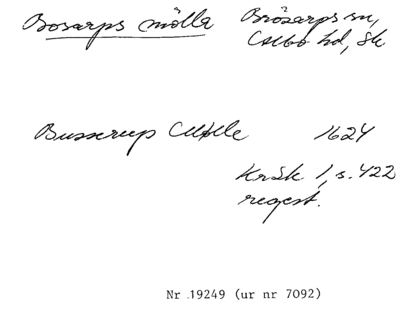 Bosarps mölla Brösarps sn,
Albo hd, Sk
Busserup Mølle 1624
KrSk 1, s. 422
regest.
Nr 19249 (ur nr 7092)